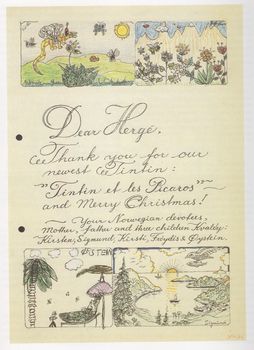 Dear Hergé,
Thank you for our
newest Tintin:
"Tintin et les Picaros"
and Merry Christmas!
Your Norwegian devotees,
Mother, father and three children Kvaløy:
Kirsten, Sigmund, Kirsti, Frøydis & Øystein.